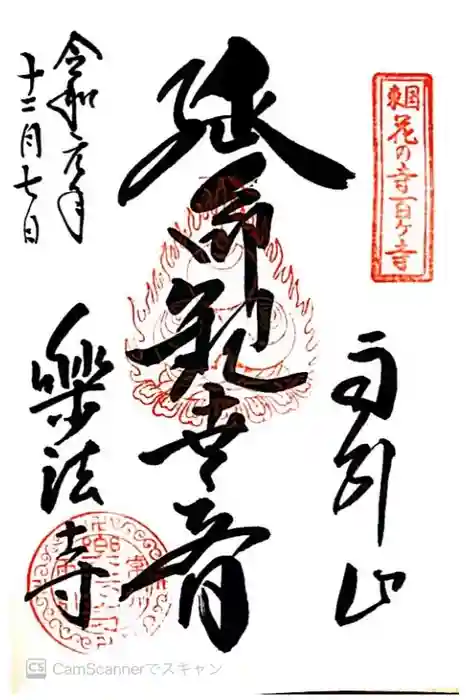 東国花の寺百ヶ寺
雨引山
延命観世音
令和六年
十二月七日
樂法寺
CS CamScannerでスキャン